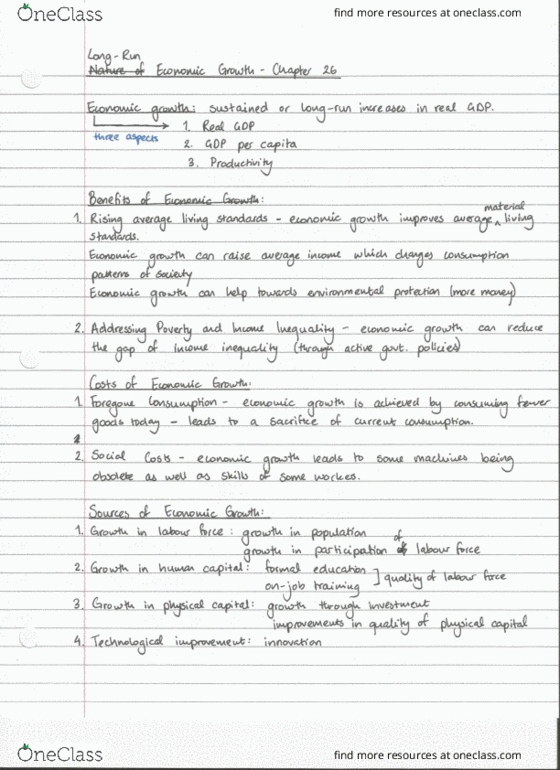 OneClass find more resources at oneclass.com
Long-Run
Nature of Economic Growth - Chapter 26
Economic growth: sustained or long-run increases in real GDP.
three aspects
1. Real GDP
2. GDP per capita
3. Productivity
Benefits of Economic Growth:
material
1. Rising average living standards - economic growth improves average ^ living
standards.
Economic growth can raise average income which changes consumption
patterns of society
Economic growth can help towards environmental protection (more money)
2. Addressing Poverty and Income Inequality - economic growth can reduce
the gap of income inequality (through active govt. policies)
Costs of Economic Growth:
1. Foregone Consumption - economic growth is achieved by consuming fewer
goods today - leads to a sacrifice of current consumption.
2
2. Social Costs - economic growth leads to some machines being
obsolete as well as skills of some workes.
Sources of Economic Growth:
1. Growth in labour force : growth in population
growth in participation of labour force
2. Growth in human capital: formal education
on-job training ] quality of labour force
3. Growth in physical capital: growth through investment
improvements in quality of physical capital
4. Technological improvement: innovation
OneClass find more resources at oneclass.com